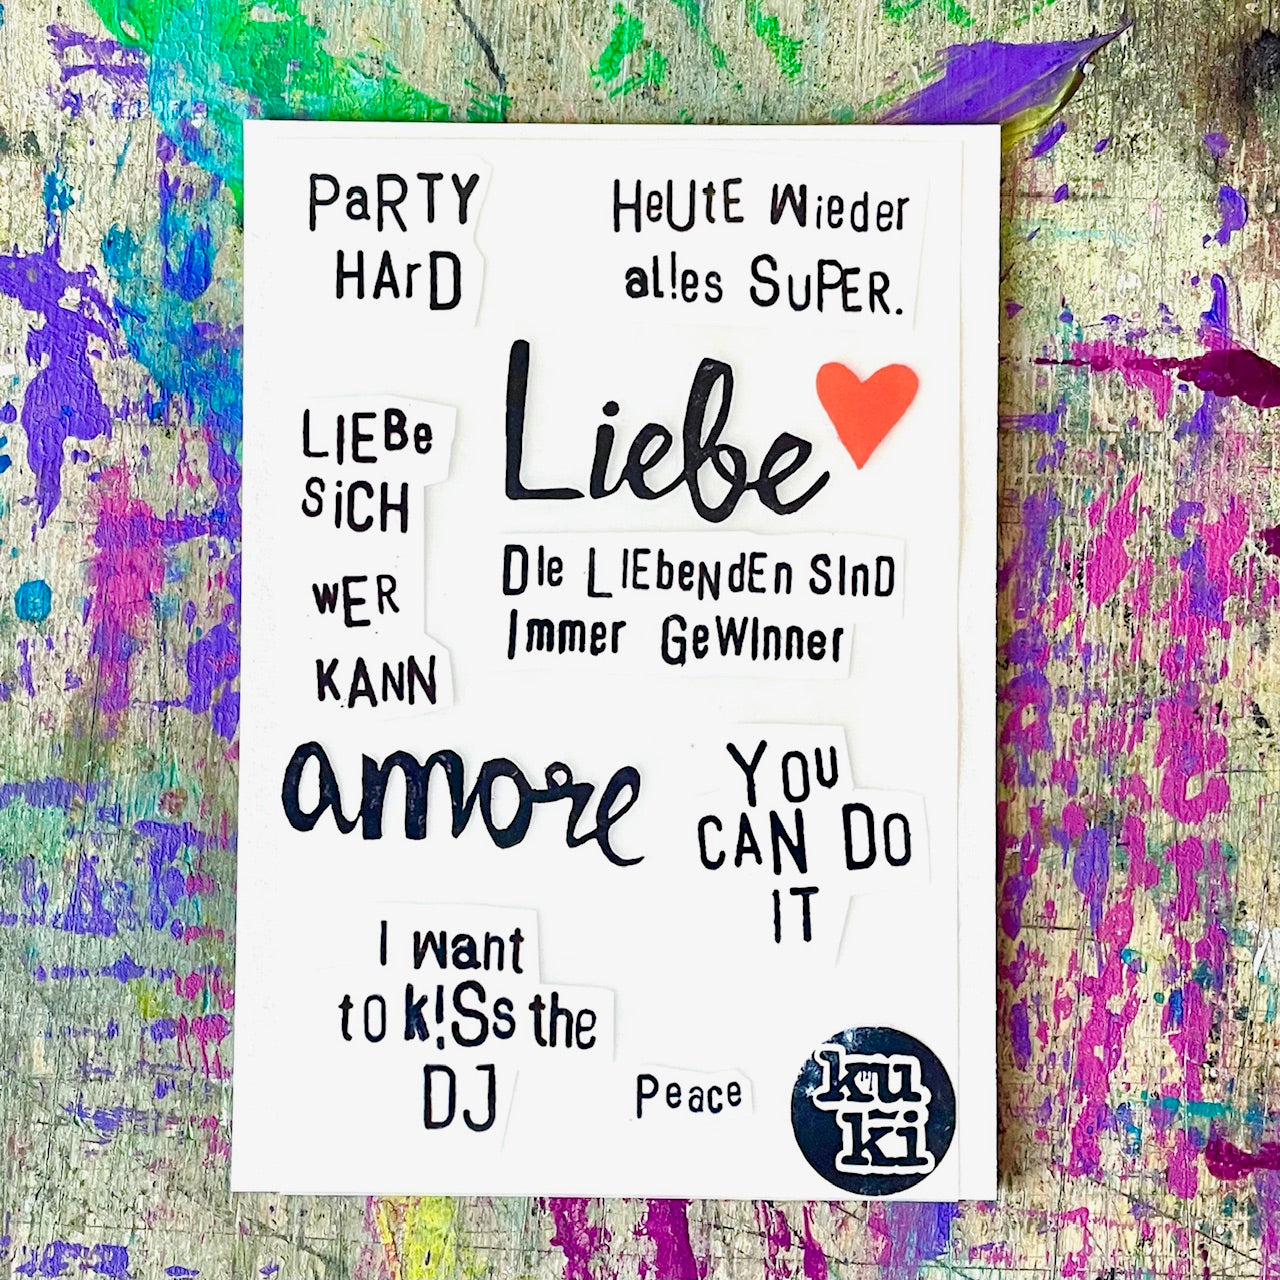 PaRTY
HArD
HeUtE Wieder
al!es SuPER.
Liebe
LIEBe
SiCH
wER
KANN
DIe LIEbeNdEn SInD
Immer GeWInner
amore
YOu
CAN DO
IT
I want
to k!SS the
DJ
Peace
ku
ki